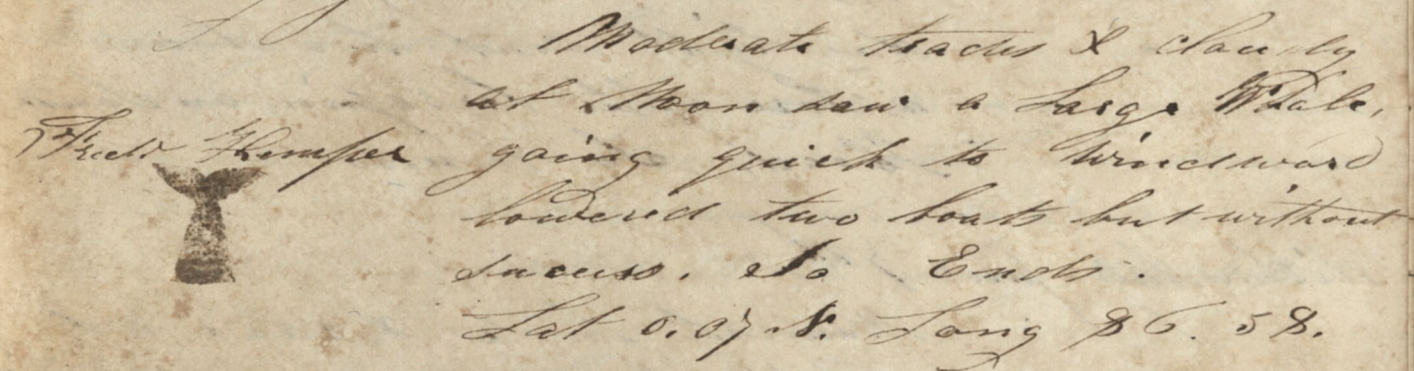 Moderate trades & cloudy
at Noon saw a Large Whale,
going quick to windward
lowered two boats but without
success. So Ends.
Lat 0.07 N. Long 86.58.